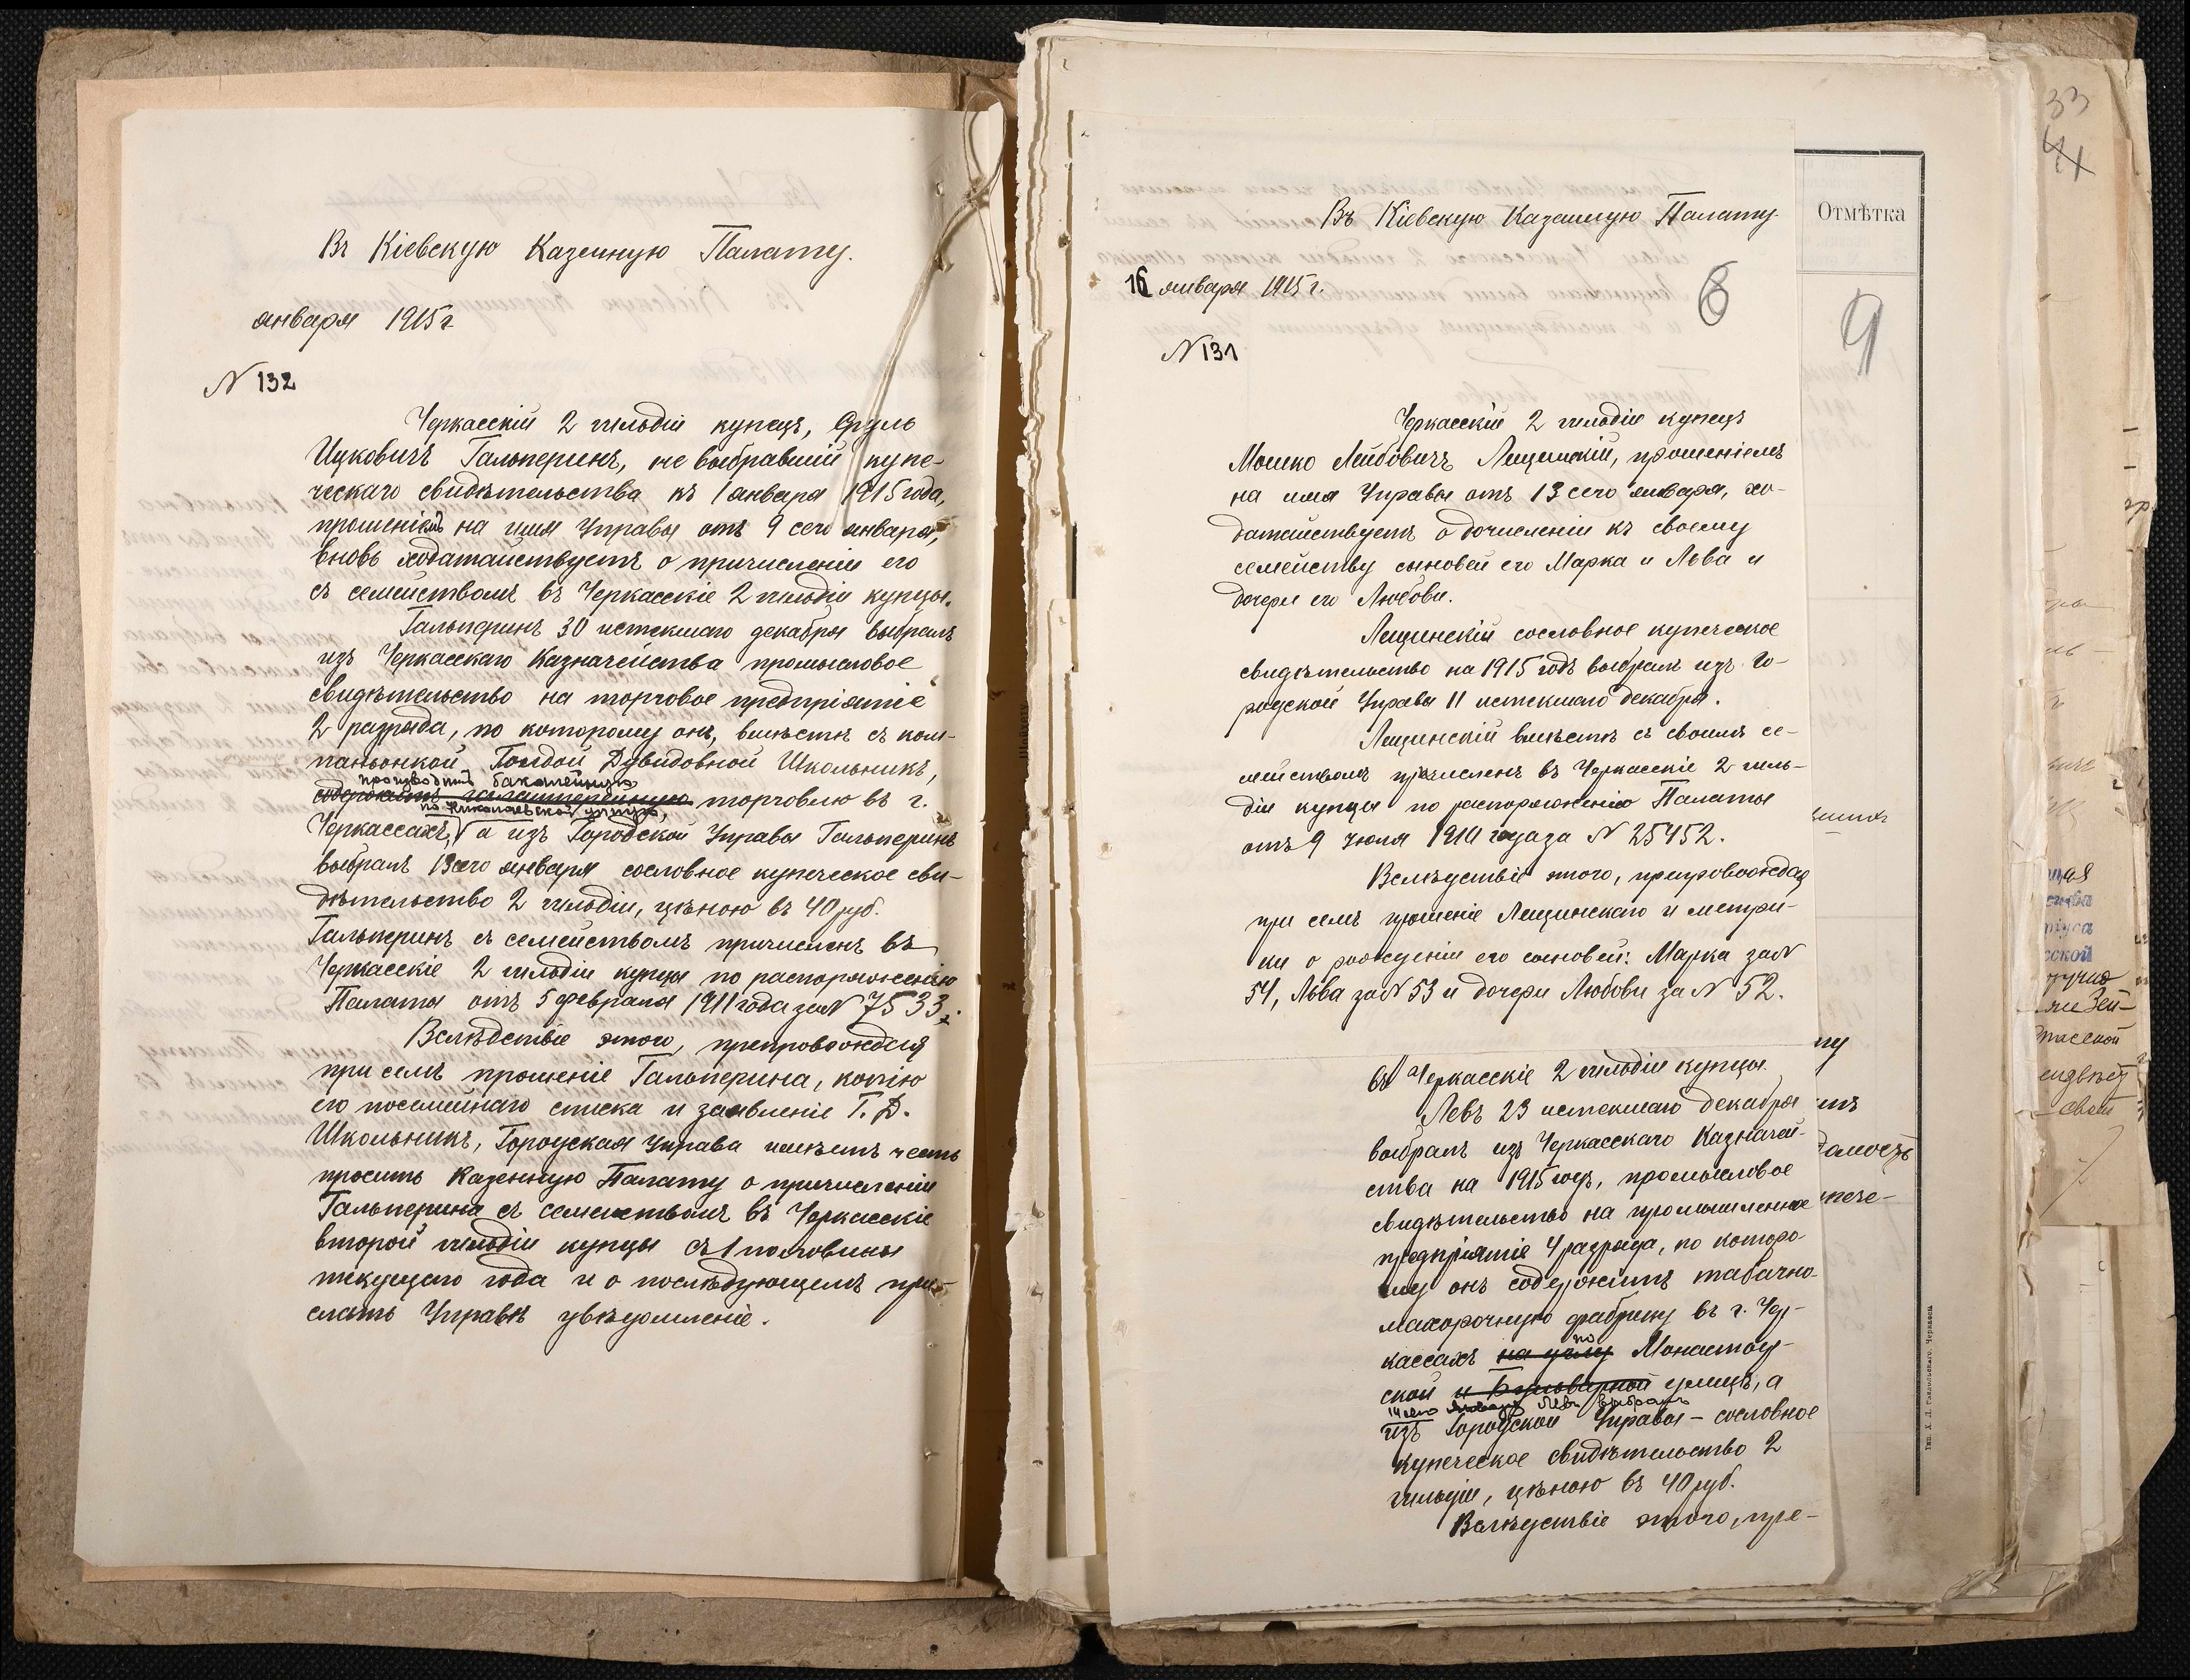 Въ Кіевскую Казенную Палату.
января 1915 г
N 132
Черкасскій 2 гильдіи купецъ, Сруль
Ицковичъ Гальперинъ, не выбравшій купе-
ческаго свидѣтельства къ 1 января 1915 года,
прошеніемъ на имя Управы отъ 9 сего января,
вновь ходатайствуетъ о причисленіи его
съ семействомъ въ Черкасскіе 2 гильдіи купцы.
Гальперинъ 30 истекшаго декабря выбралъ
изъ Черкасскаго Казначейства промысловое
свидѣтельство на торговое предпріятіе
2 разряда, по которому онъ, вмѣстѣ съ ком-
паньонкой Голдой Дувидовной Школьникъ,
производитъ бакалейную
содержитъ галантерейную торговлю въ г.
по Николаевской улицѣ,
Черкассахъ, а изъ Городской Управы Гальперинъ
выбралъ 13 сего января сословное купеческое сви-
дѣтельство 2 гильдіи, цѣною въ 40 руб.
Гальперинъ съ семействомъ причисленъ въ
Черкасскіе 2 гильдіи купцы по распоряженію
Палаты отъ 5 февраля 1911 года за N 7533.
Вслѣдствіе этого, препровождая
при семъ прошеніе Гальперина, копію
его посемейнаго списка и заявленіе Г. Д.
Школьникъ, Городская Управа имѣетъ честь
просить Казенную Палату о причисленіи
Гальперина съ семействомъ въ Черкасскіе
второй гильдіи купцы съ 1 половины
текущаго года и о послѣдующемъ при-
слать Управѣ увѣдомленіе.
Въ Кіевскую Казенную Палату.
16 января 1915 г.
6
N 131
Черкасскій 2 гильдіи купецъ
Мошко Лейбовичъ Лещинскій, прошеніемъ
на имя Управы отъ 13 сего января, хо-
датайствуетъ о дочисленіи къ своему
семейству сыновей его Марка и Льва и
дочери его Любови.
Лещинскій сословное купеческое
свидѣтельство на 1915 годъ выбралъ изъ Го-
родской Управы 11 истекшаго декабря.
Лещинскій вмѣстѣ съ своимъ се-
мействомъ причисленъ въ Черкасскіе 2 гиль-
діи купцы по распоряженію Палаты
отъ 9 Іюля 1910 года за N 25452.
Вслѣдствіе этого, препровождая
при семъ прошеніе Лещинскаго и метри-
ки о рожденіи его сыновей: Марка за N
54, Льва за N 53 и дочери Любови за N 52.
въ Черкасскіе 2 гильдіи купцы.
Левъ 23 истекшаго декабря
выбралъ изъ Черкасскаго Казначей-
ства на 1915 годъ, промысловое
свидѣтельство на промышленное
предпріятіе 4 разряда, по которо-
му онъ содержитъ табачно-
махорочную фабрику въ г. Чер-
по
кассахъ на углу Монастыр-
ской и Бульварной улицѣ, а
14 сего января Левъ выбралъ
изъ Городской Управы – сословное
купеческое свидѣтельство 2
гильдіи, цѣною въ 40 руб.
Вслѣдствіе этого, пре-
Отмѣтка
9
33
41